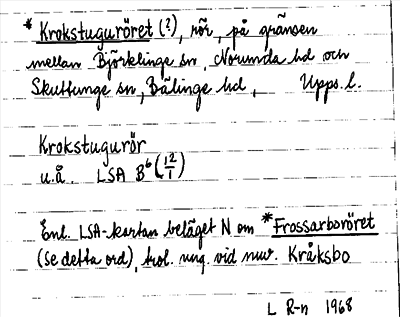 * Krokstuguröret (?), rör, på gränsen
mellan Björklinge sn, Norunda hd och
Skuttunge sn, Bälinge hd, Upps. l.
Krokstugurör
u.å. LSA B⁶ (12/1)
Enl. LSA-kartan beläget N om *Frossarboröret
(se detta ord), trol. ung. vid nuv. Kråksbo
L R-n 1968